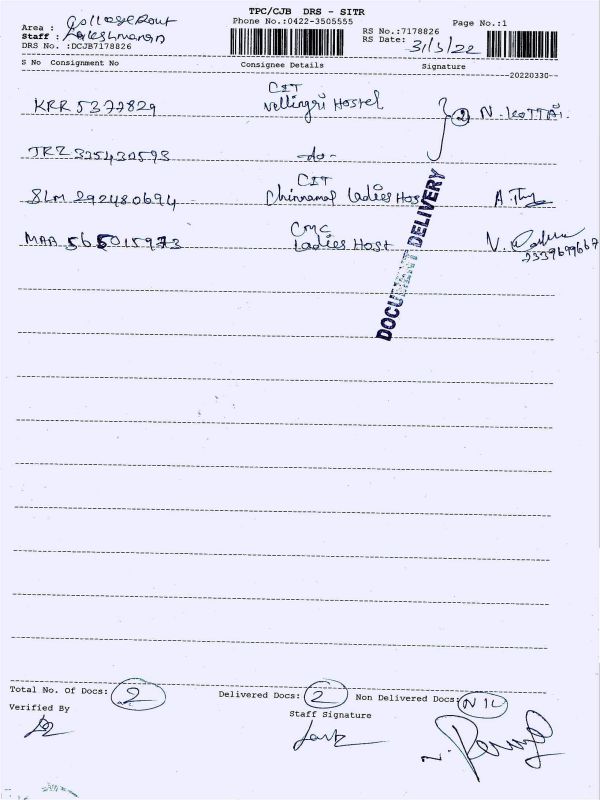 TPC/CJB DRS - SITR
Area : College Rout Phone No.:0422-3505555 Page No.:1
Staff : Lakeshmanan RS No.:7178826
DRS No. :DCJB7178826 RS Date: 31/3/22
S No Consignment No Consignee Details Signature
20220330--
KRR 5377829 CIT
Vellingri Hostel (2) N. KOTTAI.
JRZ 325430593 -do-
SLM 292480694 CIT
Chinnamal Ladies Hos A.
MAA 565015973 CMC
Ladies Host V.
DOCUMENT DELIVERY
Total No. Of Docs: 2 Delivered Docs: 2 Non Delivered Docs: NIL
Verified By Staff Signature